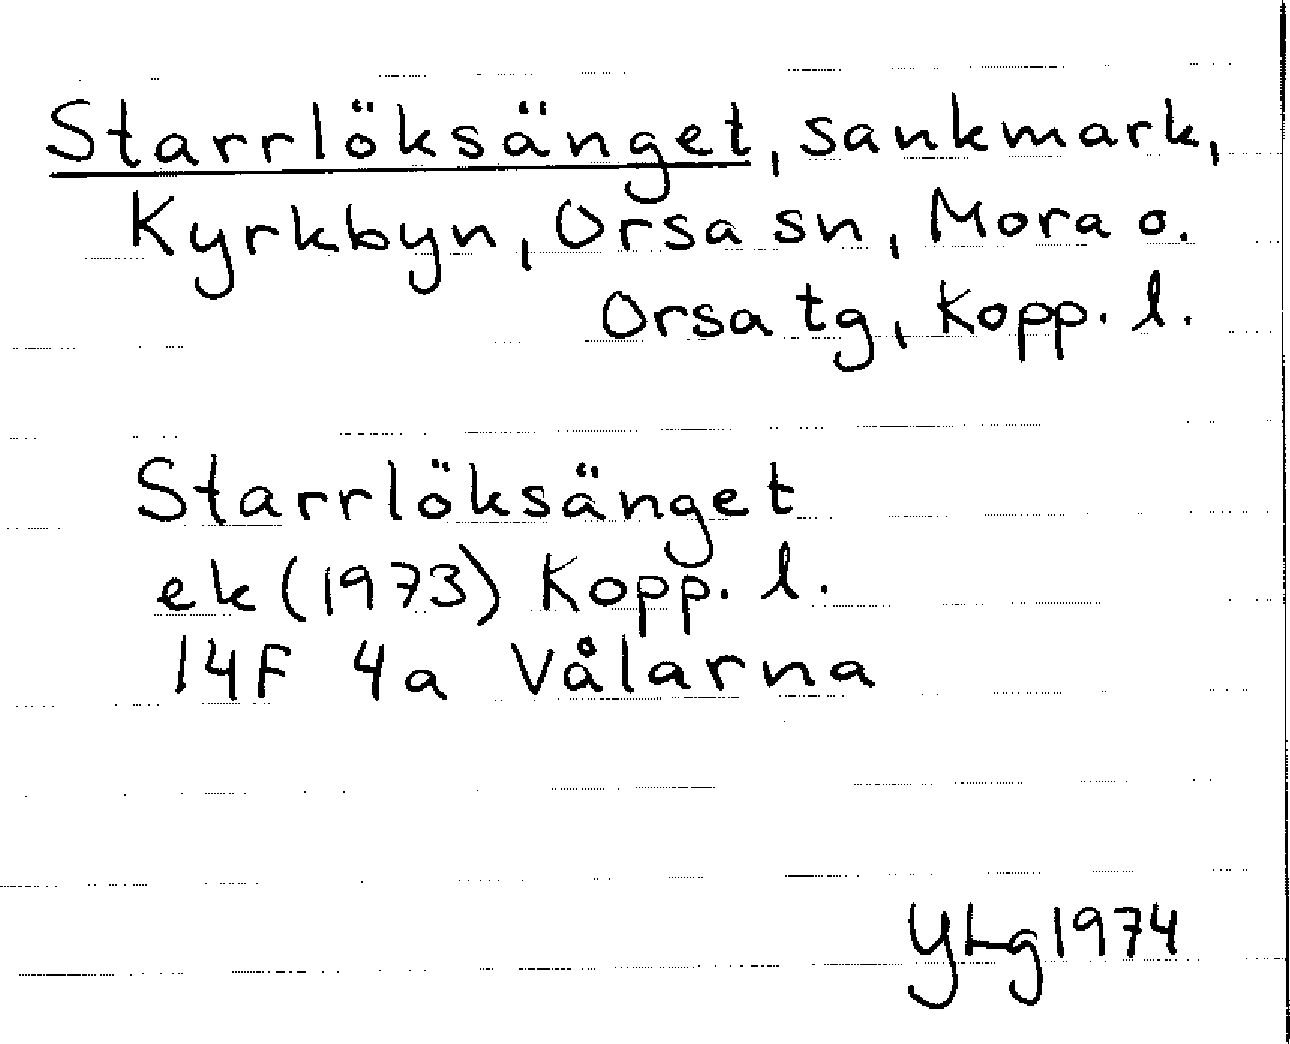 Starrlöksänget, sankmark,
Kyrkbyn, Orsa sn, Mora o.
Orsa tg, Kopp. l.
Starrlöksänget
ek (1973) Kopp. l.
14F 4a Vålarna
YLg 1974